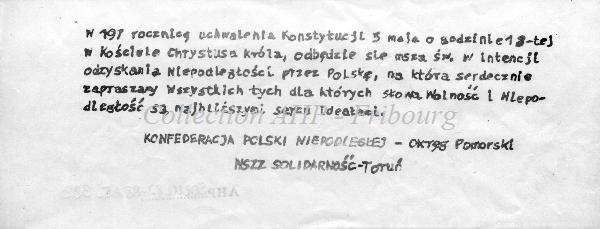 W 197 rocznicę uchwalenia Konstytucji 3 maja o godzinie 18-tej
w Kościele Chrystusa Króla, odbędzie się msza św. w intencji
odzyskania Niepodległości przez Polskę, na którą serdecznie
zapraszamy Wszystkich tych dla których słowa Wolność i Niepo-
dległość są najbliższymi sercu Ideałami.
Collection AHP - Fribourg
KONFEDERACJA POLSKI NIEPODLEGŁEJ - OKRĘG Pomorski
NSZZ SOLIDARNOŚĆ-Toruń